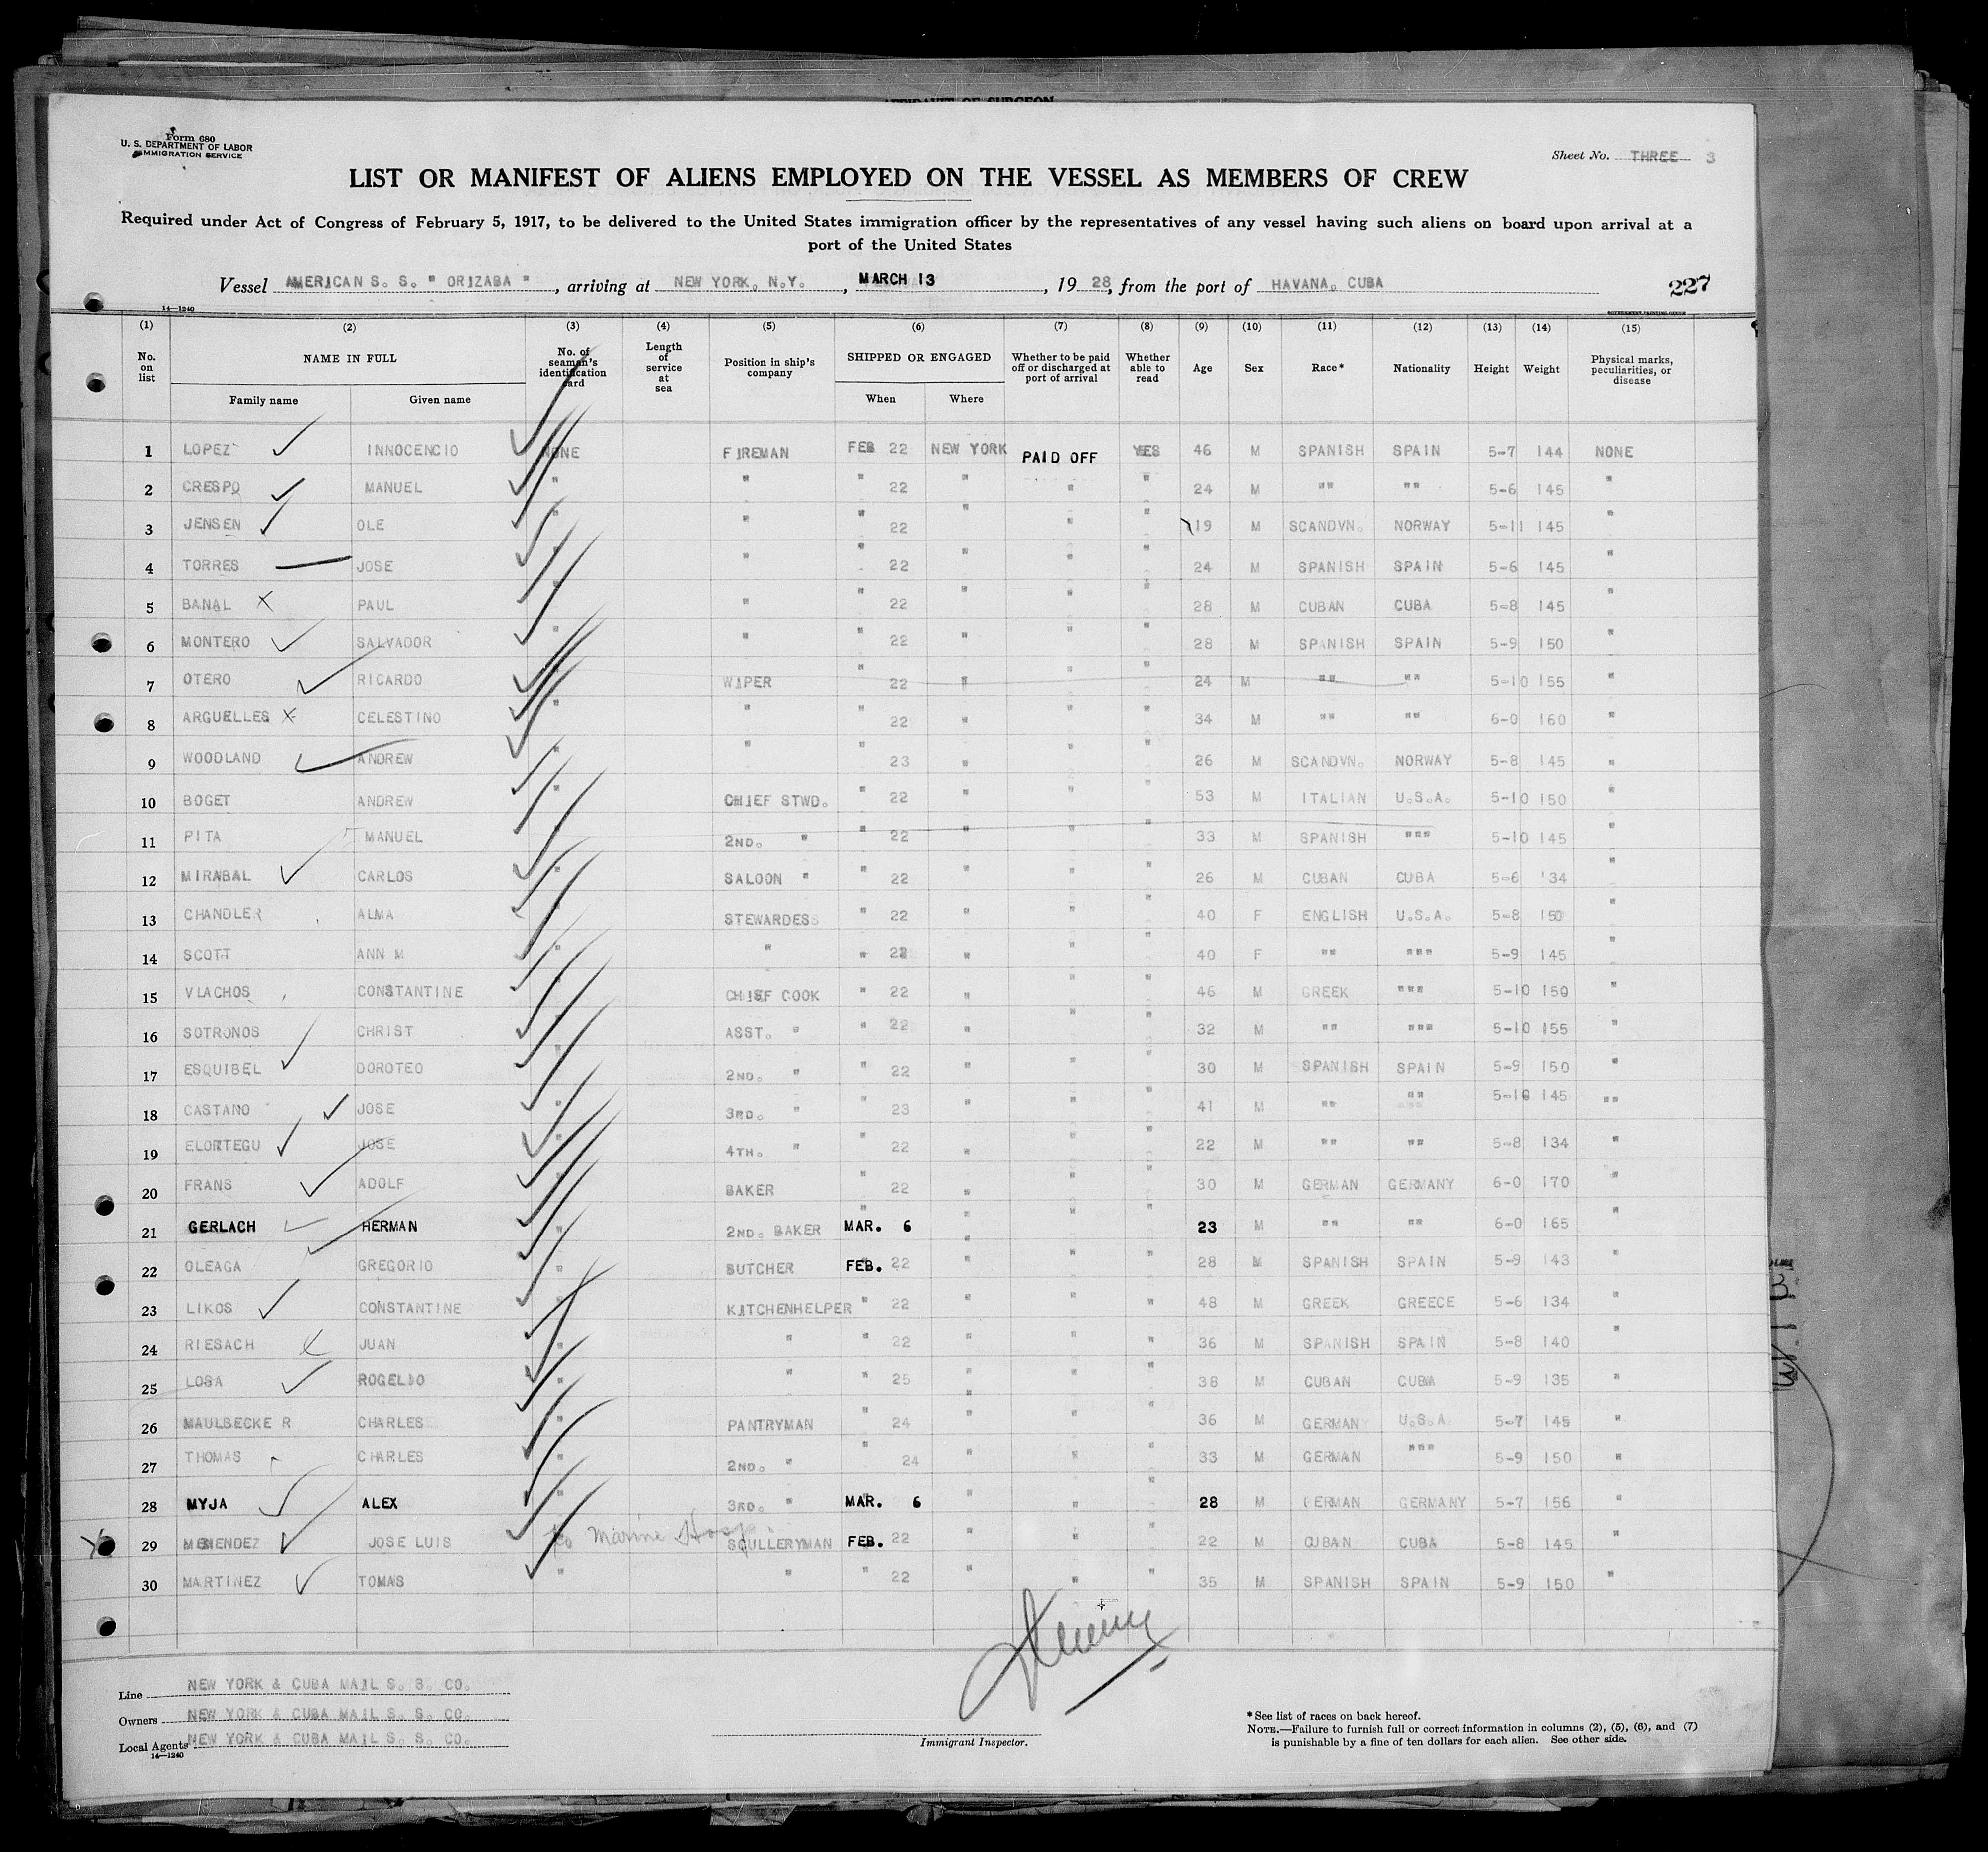 AFFIDAVIT OF SURGEON
Form 680
U. S. DEPARTMENT OF LABOR
IMMIGRATION SERVICE
Sheet No. THREE 3
LIST OR MANIFEST OF ALIENS EMPLOYED ON THE VESSEL AS MEMBERS OF CREW
Required under Act of Congress of February 5, 1917, to be delivered to the United States immigration officer by the representatives of any vessel having such aliens on board upon arrival at a
port of the United States
Vessel AMERICAN S. S. " ORIZABA ", arriving at NEW YORK, N.Y., MARCH 13, 1928, from the port of HAVANA, CUBA 227
14—1240 GOVERNMENT PRINTING OFFICE
(1) (2) (3) (4) (5) (6) (7) (8) (9) (10) (11) (12) (13) (14) (15)
No. on list NAME IN FULL No. of seaman's identification card Length of service at sea Position in ship's company SHIPPED OR ENGAGED Whether to be paid off or discharged at port of arrival Whether able to read Age Sex Race* Nationality Height Weight Physical marks, peculiarities, or disease
Family name Given name When Where
1 LOPEZ INNOCENCIO NONE FIREMAN FEB 22 NEW YORK PAID OFF YES 46 M SPANISH SPAIN 5-7 144 NONE
2 CRESPO MANUEL " " " 22 " " " 24 M "" "" 5-6 145 "
3 JENSEN OLE " " " 22 " " " 19 M SCANDVN. NORWAY 5-11 145 "
4 TORRES JOSE " " " 22 " " " 24 M SPANISH SPAIN 5-6 145 "
5 BANAL PAUL " " " 22 " " " 28 M CUBAN CUBA 5-8 145 "
6 MONTERO SALVADOR " " " 22 " " " 28 M SPANISH SPAIN 5-9 150 "
7 OTERO RICARDO WIPER " 22 " " " 24 M "" "" 5-10 155 "
8 ARGUELLES CELESTINO " " " 22 " " " 34 M "" "" 6-0 160 "
9 WOODLAND ANDREW " " " 23 " " " 26 M SCANDVN. NORWAY 5-8 145 "
10 BOGET ANDREW " CHIEF STWD. " 22 " " " 53 M ITALIAN U.S.A. 5-10 150 "
11 PITA MANUEL 2ND. " " 22 " " " 33 M SPANISH """ 5-10 145 "
12 MIRABAL CARLOS " SALOON " " 22 " " " 26 M CUBAN CUBA 5-6 134 "
13 CHANDLER ALMA " STEWARDESS " 22 " " " 40 F ENGLISH U.S.A. 5-8 150 "
14 SCOTT ANN M " " " 22 " " " 40 F "" """ 5-9 145 "
15 VLACHOS CONSTANTINE " CHIEF COOK " 22 " " " 46 M GREEK """ 5-10 150 "
16 SOTRONOS CHRIST " ASST. " " 22 " " " 32 M "" """ 5-10 155 "
17 ESQUIBEL DOROTEO " 2ND. " " 22 " " " 30 M SPANISH SPAIN 5-9 150 "
18 CASTANO JOSE " 3RD. " " 23 " " " 41 M "" "" 5-10 145 ""
19 ELORTEGU JOSE 4TH. " " 22 " " " 22 M "" "" 5-8 134 "
20 FRANS ADOLF " BAKER " 22 " " " 30 M GERMAN GERMANY 6-0 170 "
21 GERLACH HERMAN " 2ND. BAKER MAR. 6 " " " 23 M "" "" 6-0 165 "
22 OLEAGA GREGORIO " BUTCHER FEB. 22 " " " 28 M SPANISH SPAIN 5-9 143 "
23 LIKOS CONSTANTINE KITCHENHELPER " 22 " " " 48 M GREEK GREECE 5-6 134 "
24 RIESACH JUAN " " " 22 " " " 36 M SPANISH SPAIN 5-8 140 "
25 LOSA ROGELIO " " " 25 " " " 38 M CUBAN CUBA 5-9 135 "
26 MAULBECKE R CHARLES " PANTRYMAN " 24 " " " 36 M GERMAN U.S.A. 5-7 145 "
27 THOMAS CHARLES " 2ND. " " 24 " " " 33 M GERMAN """ 5-9 150 "
28 MYJA ALEX 3RD. " MAR. 6 " " " 28 M GERMAN GERMANY 5-7 156 "
29 MENENDEZ JOSE LUIS to Marine Hosp SCULLERYMAN FEB. 22 " " " 22 M CUBAN CUBA 5-8 145 "
30 MARTINEZ TOMAS " " " 22 " " " 35 M SPANISH SPAIN 5-9 150 "
Line NEW YORK & CUBA MAIL S. S. CO.
Owners NEW YORK & CUBA MAIL S. S. CO.
Local Agents NEW YORK & CUBA MAIL S. S. CO.
14—1240
Immigrant Inspector.
* See list of races on back hereof.
NOTE.—Failure to furnish full or correct information in columns (2), (5), (6), and (7)
is punishable by a fine of ten dollars for each alien. See other side.